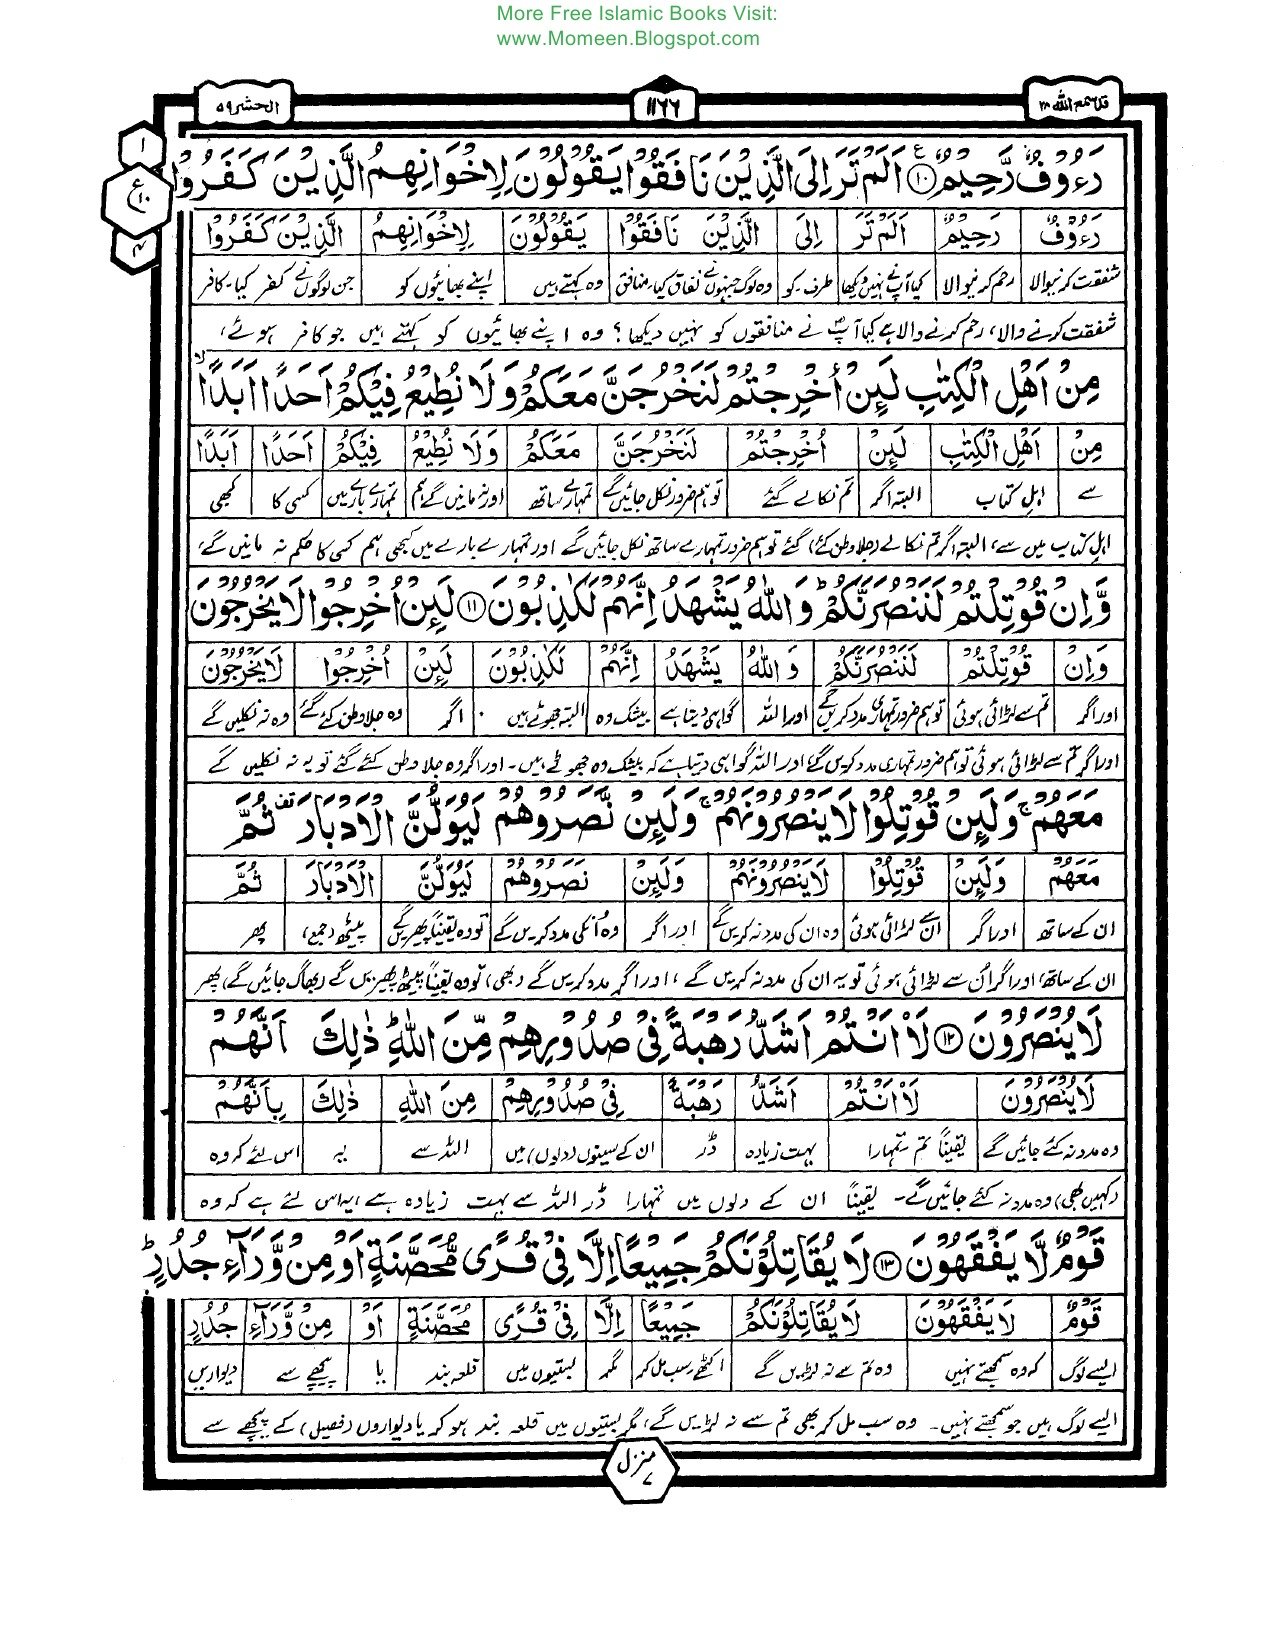 More Free Islamic Books Visit:
www.Momeen.Blogspot.com
قد سمع الله ۲۸
۱۱۶۶
الحشر ۵۹
۱
ع
۱۰
۴
رَءُوْفٌ رَّحِيْمٌ ۝۱۰ اَلَمْ تَرَ اِلَى الَّذِيْنَ نَافَقُوْا يَقُوْلُوْنَ لِاِخْوَانِهِمُ الَّذِيْنَ كَفَرُوْا
رَءُوْفٌ رَحِيْمٌ اَلَمْ تَرَ اِلَى الَّذِيْنَ نَافَقُوْا يَقُوْلُوْنَ لِاِخْوَانِهِمُ الَّذِيْنَ كَفَرُوْا
شفقت کرنیوالا رحم کرنیوالا کیا آپ نے نہیں دیکھا طرف۔کو وہ لوگ جنہوں نے نفاق کیا۔منافق وہ کہتے ہیں اپنے بھائیوں کو جن لوگوں نے کفر کیا۔کافر
شفقت کرنے والا، رحم کرنے والا ہے کیا آپ نے منافقوں کو نہیں دیکھا؟ وہ اپنے بھائیوں کو کہتے ہیں جو کافر ہوئے،
مِنْ اَهْلِ الْكِتٰبِ لَئِنْ اُخْرِجْتُمْ لَنَخْرُجَنَّ مَعَكُمْ وَلَا نُطِيْعُ فِيْكُمْ اَحَدًا اَبَدًا
مِنْ اَهْلِ الْكِتٰبِ لَئِنْ اُخْرِجْتُمْ لَنَخْرُجَنَّ مَعَكُمْ وَلَا نُطِيْعُ فِيْكُمْ اَحَدًا اَبَدًا
سے اہل کتاب البتہ اگر تم نکالے گئے تو ہم ضرور نکل جائیں گے تمہارے ساتھ اور نہ مانیں گے ہم تمہارے بارے میں کسی کا کبھی
اہل کتاب میں سے، البتہ اگر تم نکالے (جلا وطن کئے) گئے تو ہم ضرور تمہارے ساتھ نکل جائیں گے اور تمہارے بارے میں کبھی ہم کسی کا حکم نہ مانیں گے،
وَّاِنْ قُوْتِلْتُمْ لَنَنْصُرَنَّكُمْ ؕ وَاللّٰهُ يَشْهَدُ اِنَّهُمْ لَكٰذِبُوْنَ ۝۱۱ لَئِنْ اُخْرِجُوْا لَا يَخْرُجُوْنَ
وَاِنْ قُوْتِلْتُمْ لَنَنْصُرَنَّكُمْ وَاللّٰهُ يَشْهَدُ اِنَّهُمْ لَكٰذِبُوْنَ لَئِنْ اُخْرِجُوْا لَا يَخْرُجُوْنَ
اور اگر تم سے لڑائی ہوئی تو ہم ضرور تمہاری مدد کریں گے اور اللہ گواہی دیتا ہے بیشک وہ البتہ جھوٹے ہیں اگر وہ جلا وطن کئے گئے وہ نہ نکلیں گے
اور اگر تم سے لڑائی ہوئی تو ہم ضرور تمہاری مدد کریں گے اور اللہ گواہی دیتا ہے کہ بیشک وہ جھوٹے ہیں۔ اور اگر وہ جلا وطن کئے گئے تو یہ نہ نکلیں گے
مَعَهُمْ ۚ وَلَئِنْ قُوْتِلُوْا لَا يَنْصُرُوْنَهُمْ ۚ وَلَئِنْ نَّصَرُوْهُمْ لَيُوَلُّنَّ الْاَدْبَارَ ۫ ثُمَّ
مَعَهُمْ وَلَئِنْ قُوْتِلُوْا لَا يَنْصُرُوْنَهُمْ وَلَئِنْ نَصَرُوْهُمْ لَيُوَلُّنَّ الْاَدْبَارَ ثُمَّ
ان کے ساتھ اور اگر ان سے لڑائی ہوئی وہ ان کی مدد نہ کریں گے اور اگر وہ انکی مدد کریں گے تو وہ یقیناً پھیریں گے پیٹھ (جمع) پھر
ان کے ساتھ، اور اگر ان سے لڑائی ہوئی تو یہ ان کی مدد نہ کریں گے، اور اگر مدد کریں گے (بھی) تو وہ یقیناً پیٹھ پھیریں گے (بھاگ جائیں گے)، پھر
لَا يُنْصَرُوْنَ ۝۱۲ لَاَ۬انْتُمْ اَشَدُّ رَهْبَةً فِيْ صُدُوْرِهِمْ مِّنَ اللّٰهِ ؕ ذٰلِكَ اَنَّهُمْ
لَا يُنْصَرُوْنَ لَاَ۬انْتُمْ اَشَدُّ رَهْبَةً فِيْ صُدُوْرِهِمْ مِنَ اللّٰهِ ذٰلِكَ بِاَنَّهُمْ
وہ مدد نہ کئے جائیں گے یقیناً تم۔تمہارا بہت زیادہ ڈر ان کے سینوں (دلوں) میں اللہ سے یہ اس لئے کہ وہ
(کہیں بھی) وہ مدد نہ کئے جائیں گے۔ یقیناً ان کے دلوں میں تمہارا ڈر اللہ سے بہت زیادہ ہے، یہ اس لئے ہے کہ وہ
قَوْمٌ لَّا يَفْقَهُوْنَ ۝۱۳ لَا يُقَاتِلُوْنَكُمْ جَمِيْعًا اِلَّا فِيْ قُرًى مُّحَصَّنَةٍ اَوْ مِنْ وَّرَآءِ جُدُرٍ ؕ
قَوْمٌ لَا يَفْقَهُوْنَ لَا يُقَاتِلُوْنَكُمْ جَمِيْعًا اِلَّا فِيْ قُرًى مُحَصَّنَةٍ اَوْ مِنْ وَّرَآءِ جُدُرٍ
ایسے لوگ کہ وہ سمجھتے نہیں وہ تم سے نہ لڑیں گے اکٹھے۔سب مل کر مگر بستیوں میں قلعہ بند یا پیچھے سے دیواریں
ایسے لوگ ہیں جو سمجھتے نہیں۔ وہ سب مل کر بھی تم سے نہ لڑیں گے، مگر بستیوں میں قلعہ بند ہو کر یا دیواروں (فصیل) کے پیچھے سے
منزل ۷